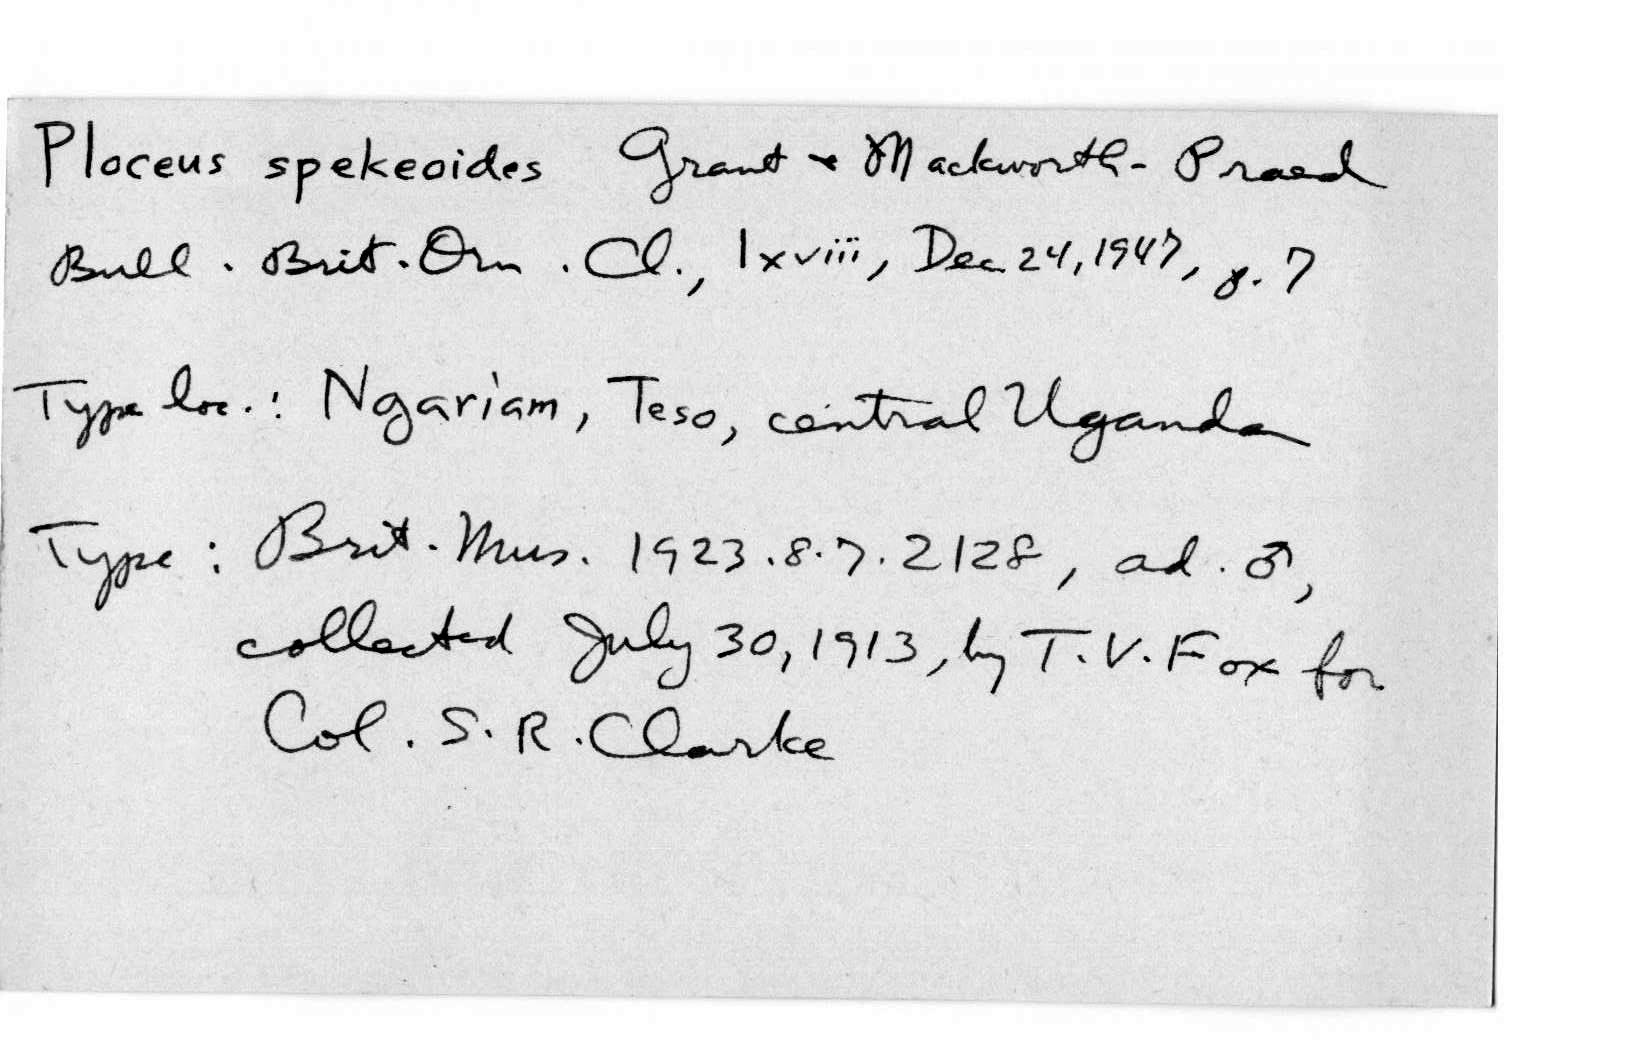 Ploceus spekeoides Grant & Mackworth-Praed
Bull. Brit. Orn. Cl., lxviii, Dec 24, 1947, p. 7
Type loc.: Ngariam, Teso, central Uganda
Type: Brit. Mus. 1923.8.7.2128, ad. ♂,
collected July 30, 1913, by T.V. Fox for
Col. S.R. Clarke